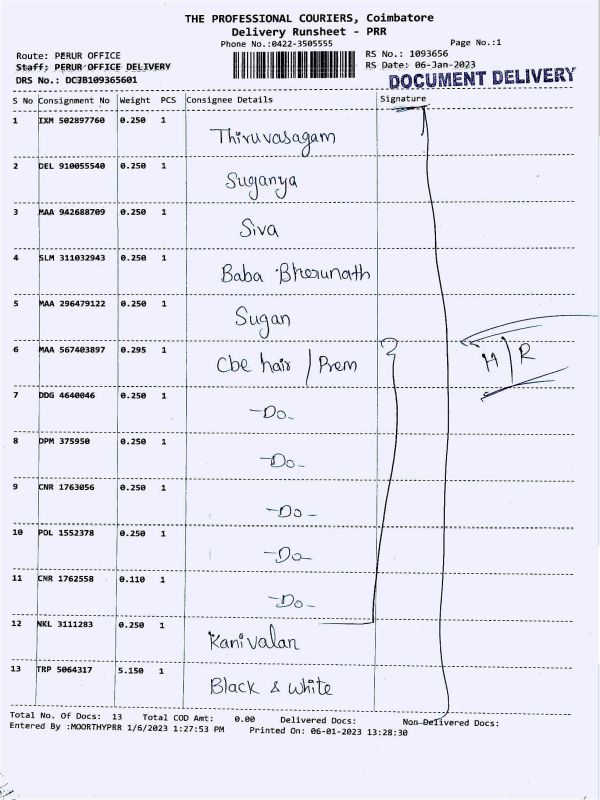 THE PROFESSIONAL COURIERS, Coimbatore
Delivery Runsheet - PRR
Phone No.:0422-3505555 Page No.:1
Route: PERUR OFFICE RS No.: 1093656
Staff: PERUR OFFICE DELIVERY RS Date: 06-Jan-2023
DRS No.: DC3B109365601 DOCUMENT DELIVERY
S No Consignment No Weight PCS Consignee Details Signature
1 IXM 502897760 0.250 1 Thiruvasagam
2 DEL 910055540 0.250 1 Suganya
3 MAA 942688709 0.250 1 Siva
4 SLM 311032943 0.250 1 Baba Bherunath
5 MAA 296479122 0.250 1 Sugan
6 MAA 567403897 0.295 1 Cbe hair / Prem H/R
7 DDG 4640046 0.250 1 -Do-
8 DPM 375950 0.250 1 -Do-
9 CNR 1763056 0.250 1 -Do-
10 POL 1552378 0.250 1 -Do-
11 CNR 1762558 0.110 1 -Do-
12 NKL 3111283 0.250 1 Kanivalan
13 TRP 5064317 5.150 1 Black & white
Total No. Of Docs: 13 Total COD Amt: 0.00 Delivered Docs: Non-Delivered Docs:
Entered By :MOORTHYPRR 1/6/2023 1:27:53 PM Printed On: 06-01-2023 13:28:30